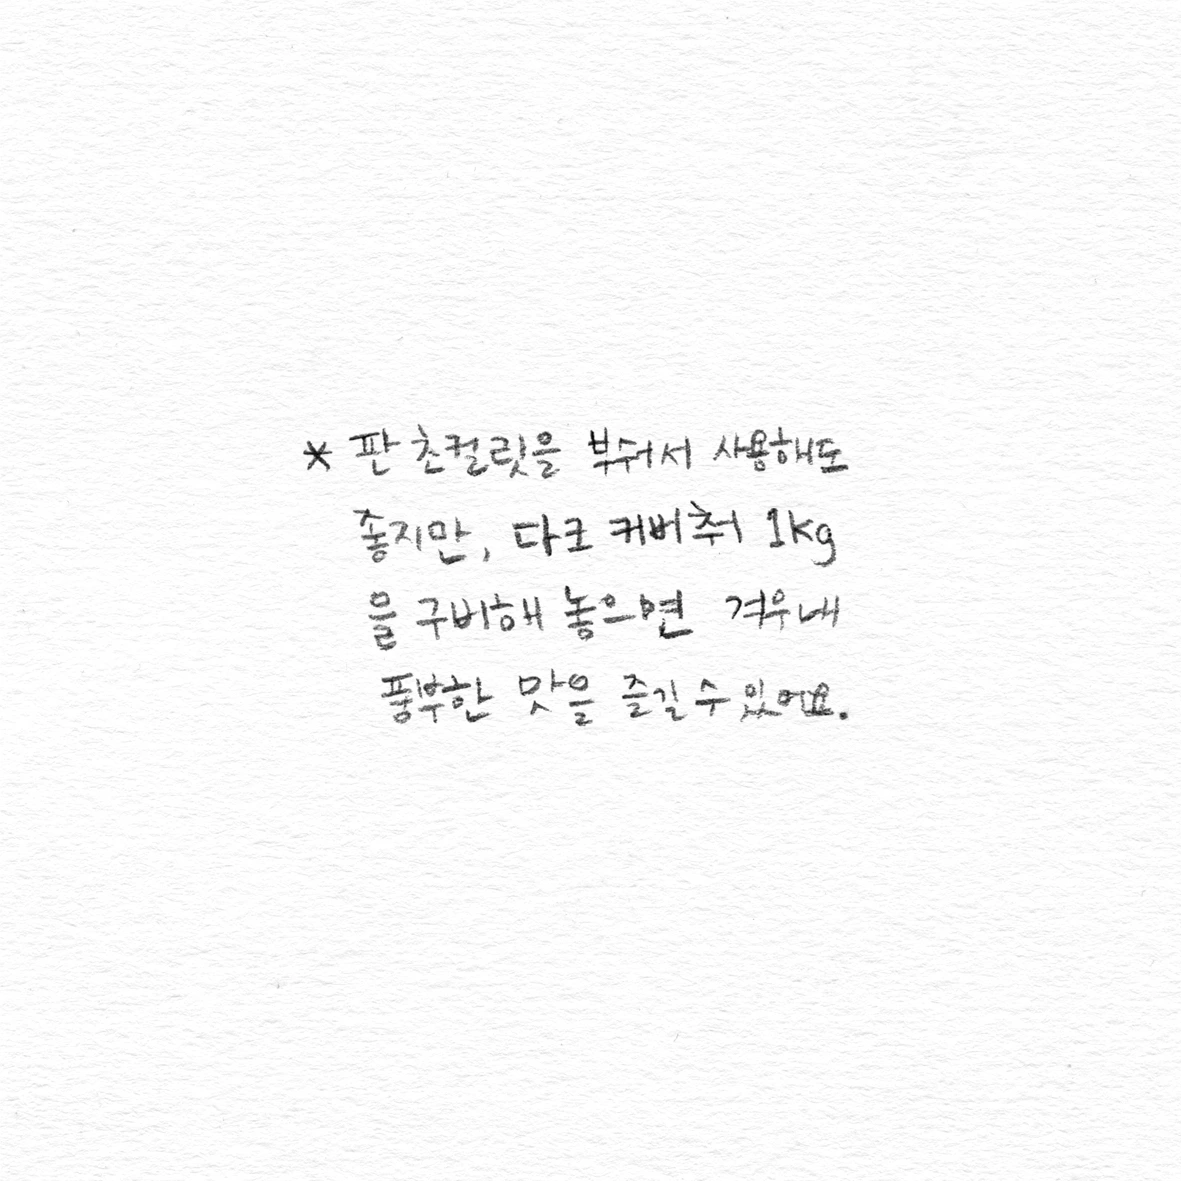 * 판 초컬릿을 부숴서 사용해도
좋지만, 다크 커버춰 1kg
을 구비해 놓으면 겨우내
풍부한 맛을 즐길 수 있어요.